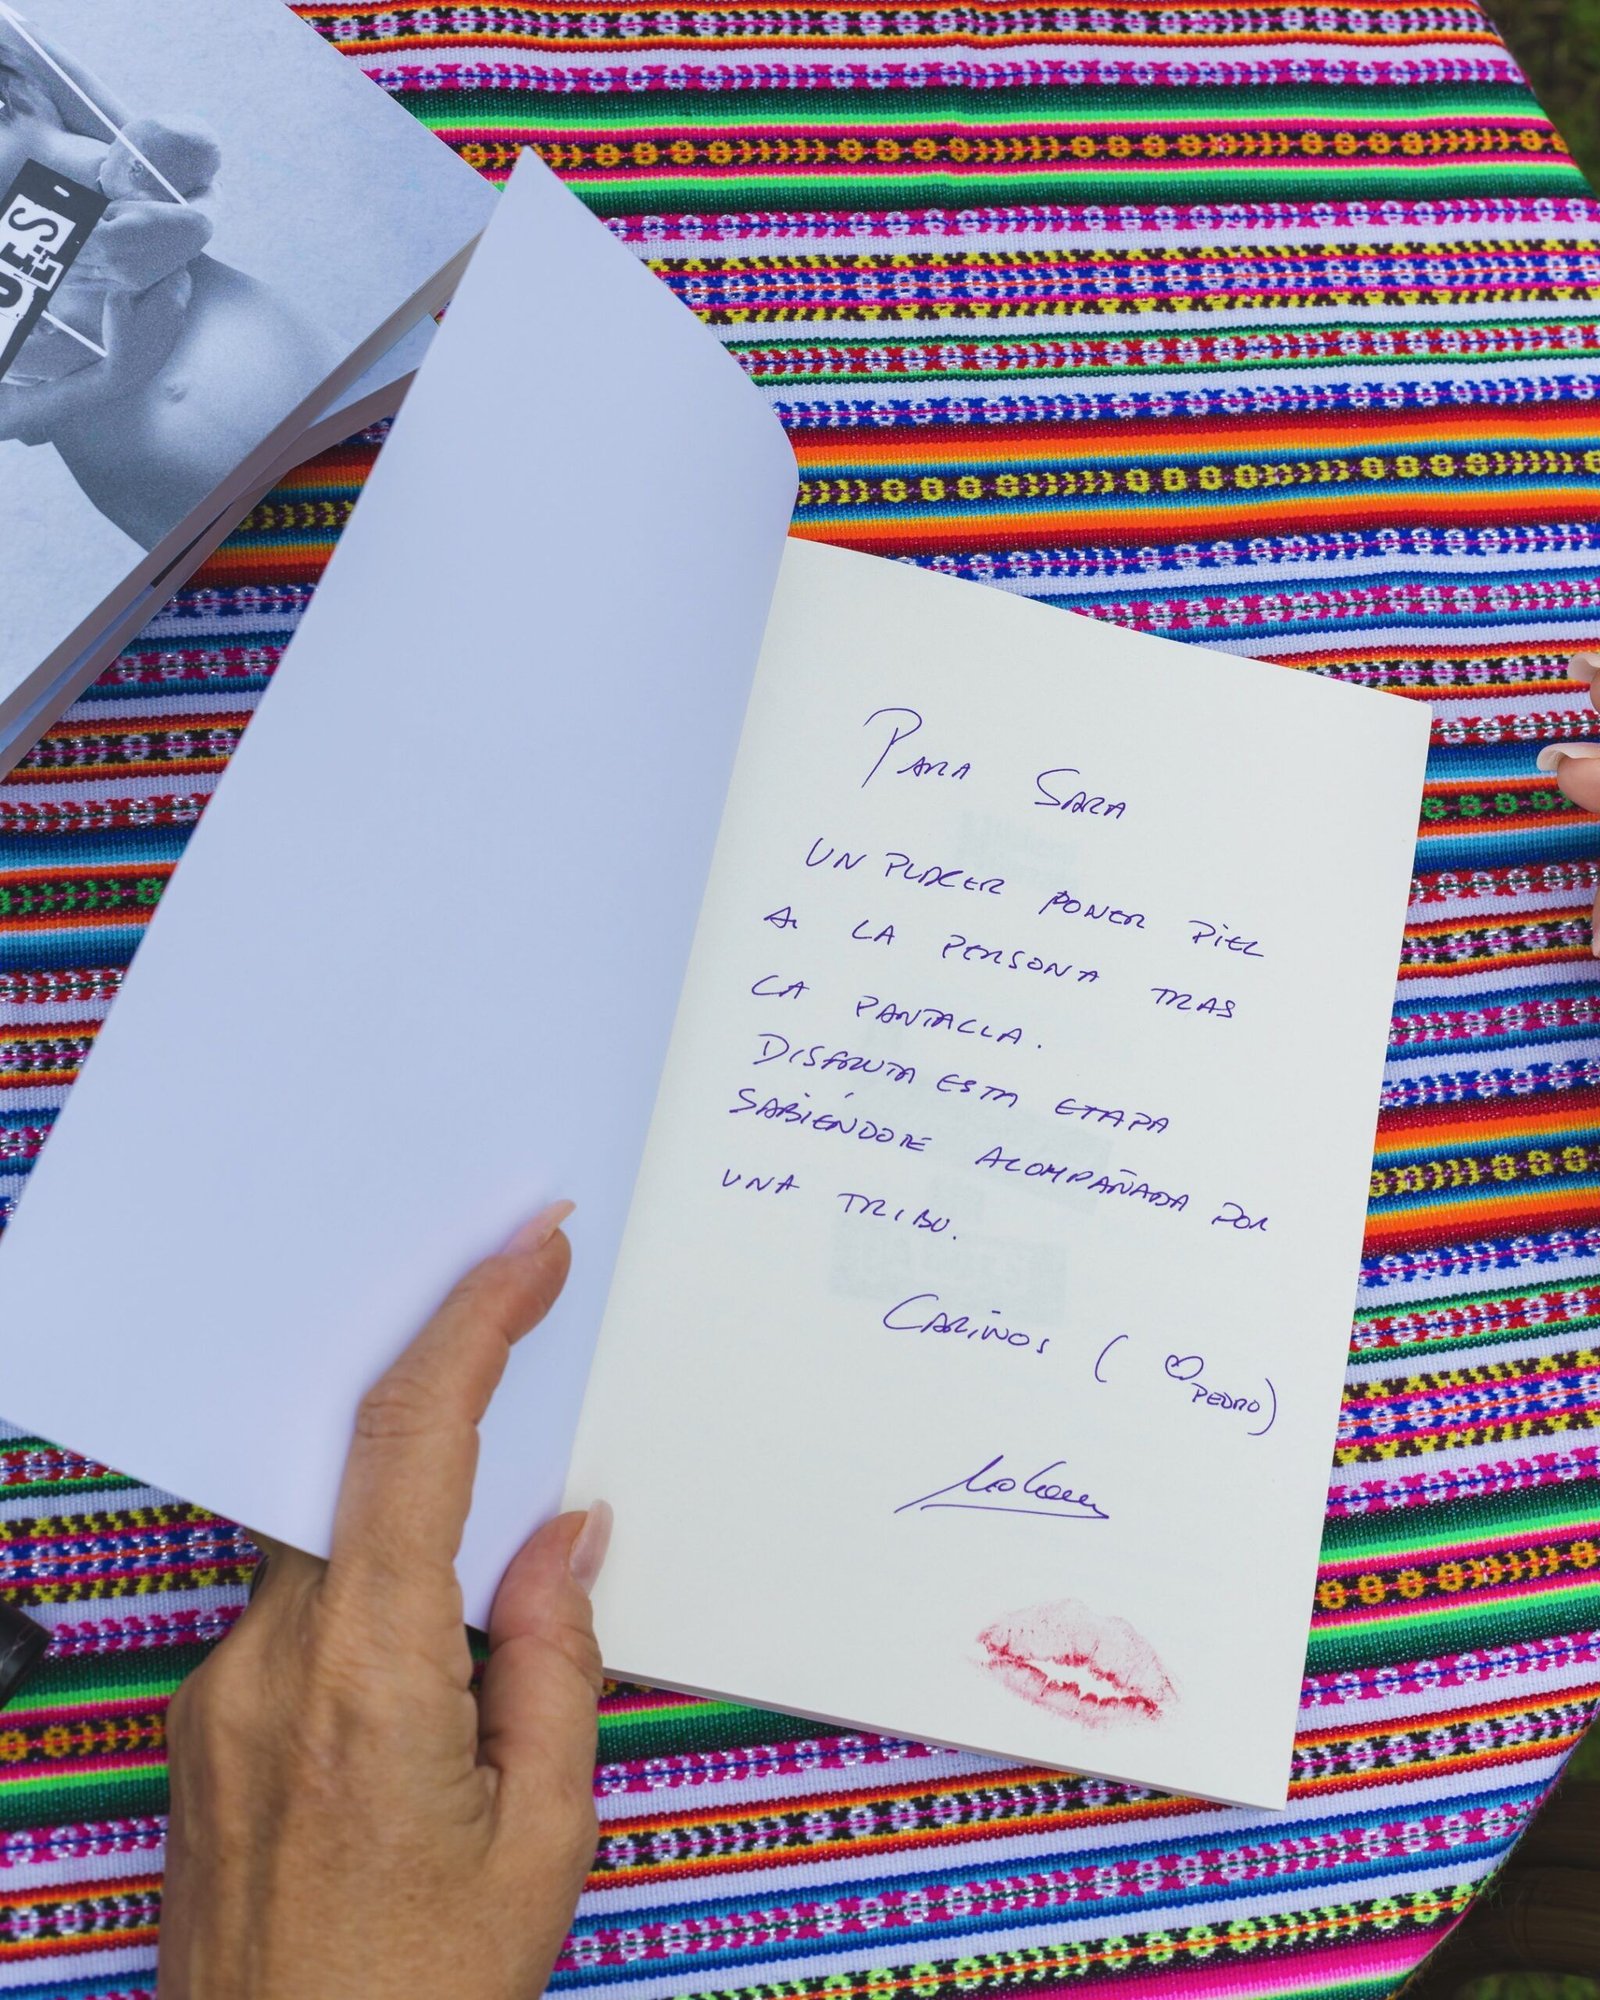 Para Sara
UN PLACER PONER PIEL
A LA PERSONA TRAS
LA PANTALLA.
DISFRUTA ESTA ETAPA
SABIÉNDOTE ACOMPAÑADA POR
UNA TRIBU.
CARIÑOS ( ♡
PEDRO)